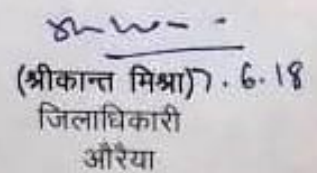 (श्रीकान्त मिश्रा) 7.6.18
जिलाधिकारी
औरैया